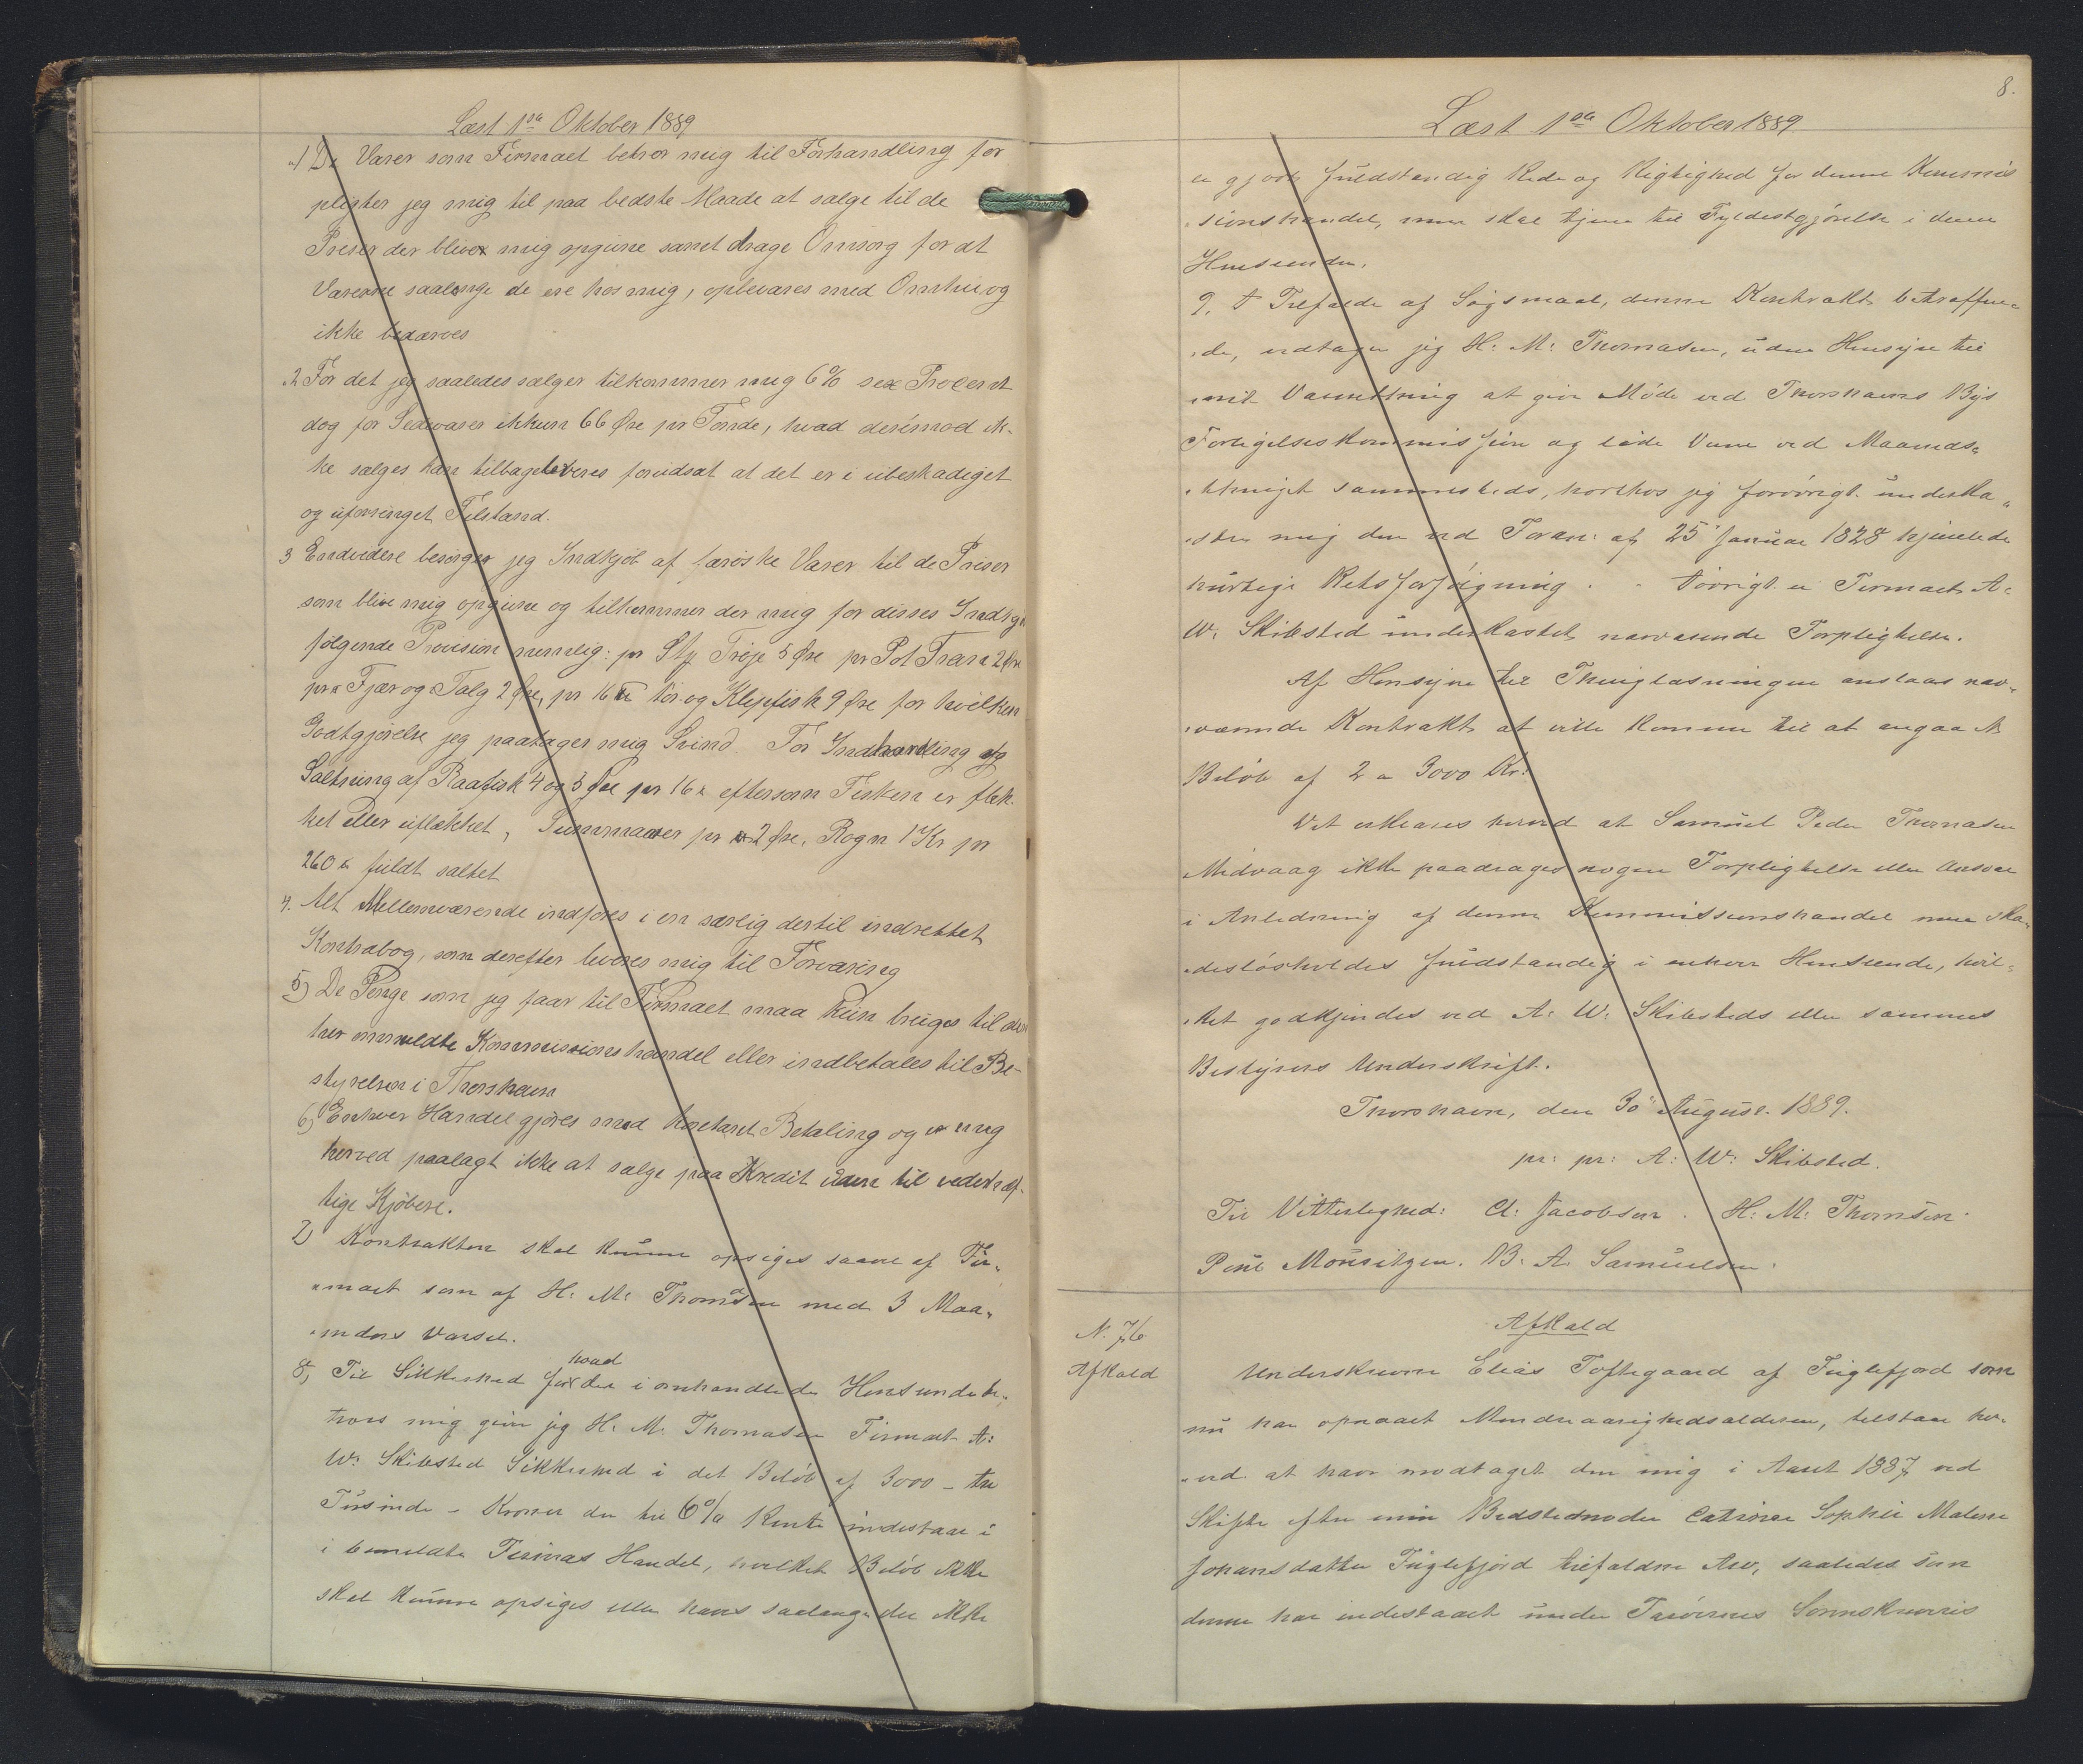 Læst 1ste Oktober 1889
1 De Varer som Firmaet betror mig til Forhandling for
pligter jeg mig til paa bedste Maade at sælge til de
Priser der bliver mig opgivne samt drage Omsorg for at
Varerne saalænge de ere hos mig, opbevares med Omhu og
ikke bedærves
2 For det jeg saaledes sælger tilkommer mig 6% sex Procent
dog for Sædvarer ikkun 66 Øre pr Tønde, hvad derimod ik-
ke sælges kan tilbageleveres forudsat at det er i ubeskadiget
og uforringet Tilstand.
3 Endvidere besørger jeg Indkjøb af færøske Varer til de Priser
som blive mig opgivne og tilkommer der mig for disses Indkjøb
følgende Provision nemlig: pr Stk Trøje 5 Øre pr Pot Tran 2 Øre
pr ℔ Fjær og Talg 2 Øre, pr 16 ℔ tør og Klipfisk 9 Øre for hvilken
Godtgjørelse jeg paatager mig Svind. For Indhandling og
Saltning af Raafisk 4 og 3 Øre pr 16 ℔ eftersom Fisken er flæk-
ket eller uflækket, Summaver pr ℔ 2 Øre, Rogn 1 Kr pr
260 ℔ fuldt saltet
4. Alt Mellemværende indføres i en særlig dertil indrettet
Kontrabog, som derefter leveres mig til Forvaring
5) De Penge som jeg faar til Firmaet maa kun bruges til den
her ommeldte Kommissionshandel eller indbetales til Be-
styrelsen i Thorshavn
6) Enhver Handel gjøres mod kontant Betaling og er mig
herved paalagt ikke at sælge paa Kredit uden til vederhæf-
tige Kjøbere.
7) Kontrakten skal kunne opsiges saavel af Fir-
maet som af H. M. Thomasen med 3 Maa-
neders Varsel.
hvad
8) Til Sikkerhed for der i omhandlede Henseende be-
troes mig giver jeg H. M. Thomasen Firmaet A:
W: Skibsted Sikkerhed i det Beløb af 3000 – tre
Tusinde – Kroner der til 6% Rente indestaar i
i bemeldte Firmas Handel, hvilket Beløb ikke
skal kunne opsiges eller hæves saalænge der ikke
8.
Læst 1ste Oktober 1889
er gjort fuldstændig Rede og Rigtighed for denne Kommis
sionshandel, men skal tjene til Fyldestgjørelse i denne
Henseende.
9, I Tilfælde af Søgsmaal, denne Kontrakt betræffen-
de, vedtager jeg H: M: Thomasen, uden Hensyn til
mit Værneting at give Møde ved Thorshavns Bys
Forligelseskommission og lide Dom ved Maaneds-
thinget sammesteds, hvorhos jeg forøvrigt underka-
ster mig den ved Foran: af 25 Januar 1828 hjemlede
hurtige Retsforfølgning. - Iøvrigt er Firmaet A:
W. Skibsted underkastet nærværende Forpligtelse.
Af Hensyn til Thinglæsningen anslaaes nær-
værende Kontrakt at ville komme til at angaa et
Beløb af 2 a 3000 Kr:
Det erklæres herved at Samuel Peder Thomasen
Midvaag ikke paadrages nogen Forpligtelse eller Ansvar
i Anledning af denne Kommissionshandel men ska-
desløsholdes fuldstændig i enhver Henseende, hvil-
ket godkjendes ved A: W: Skibsteds eller sammes
Bestyrers Underskrift.
Thorshavn, den 30 August 1889.
pr: pr: A: W: Skibsted.
Til Vitterlighed: A: Jacobsen. H: M: Thomsen.
Poul Mouritzen. B: A. Samuelsen.
N. 76
Afkald
Afkald
Underskrevne Elias Toftegaard af Fuglefjord som
nu har opnaaet Myndighedsalderen, tilstaar her-
ved at have modtaget den mig i Aaret 1887 ved
Skifte efter min Bedstemoder Catrine Sophie Malene
Johansdatter Fuglefjord tilfaldne Arv, saaledes som
denne har indestaaet under Færøernes Sorenskriveris